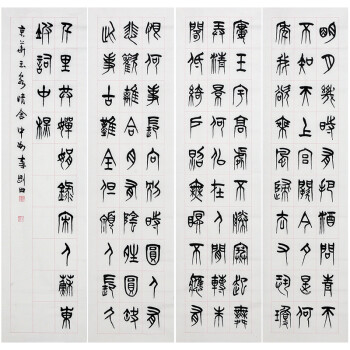 明月幾時有把酒問青天
不知天上宮闕今夕是何
年我欲乘風歸去又恐瓊
樓玉宇高處不勝寒起舞
弄清影何似在人間轉朱
閣低綺戶照無眠不應有
恨何事長向別時圓人有
悲歡離合月有陰晴圓缺
此事古難全但願人長久
千里共嬋娟錄宋人蘇東
坡詞中秋